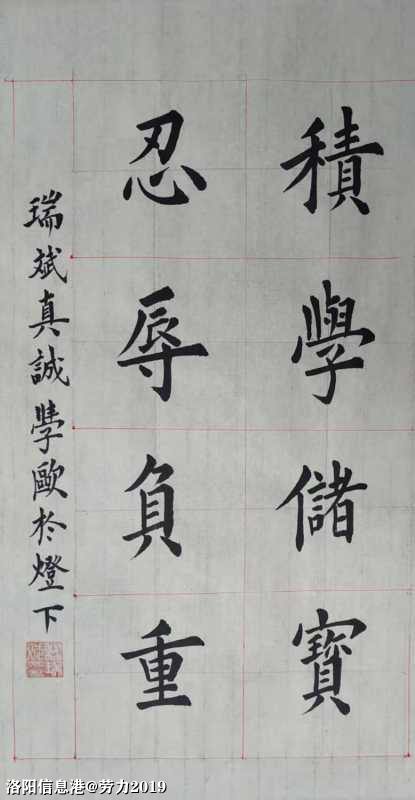 積學儲寶
忍辱負重
瑞斌真誠學歐於燈下
洛阳信息港@劳力2019